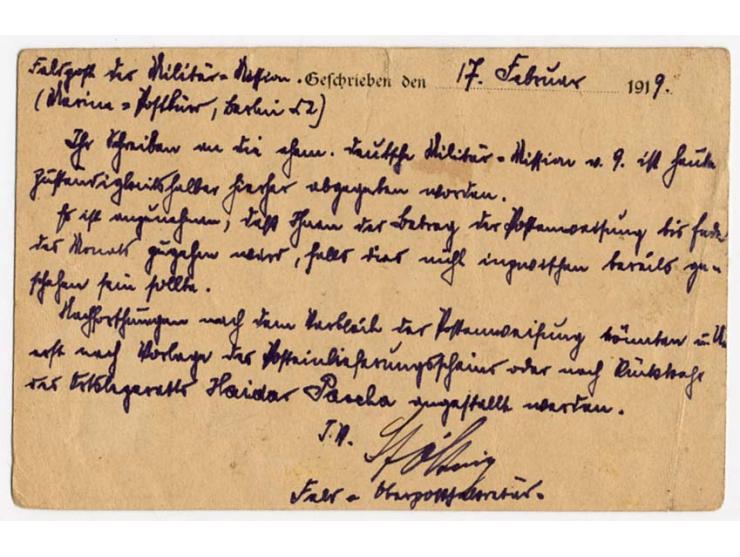 Feldpost der Militär=Mission. Geschrieben den 17. Februar 1919.
(Marine=Postbüro, Berlin C2)
Ihr Schreiben an die ehem. deutsche Militär=Mission v. 9. ist heute
zuständigkeitshalber hierher abgegeben worden.
Es ist anzunehmen, daß Ihnen der Betrag der Postanweisung bis Ende
des Monats zugehen wird, falls dies nicht inzwischen bereits ge=
schehen sein sollte.
Nachforschungen nach dem Verbleib der Postanweisung könnten
erst nach Vorlage des Posteinlieferungsscheins oder nach Rückkehr
des Haidar Pascha angestellt werden.
I. A.
Feld=Oberpostsekretär.